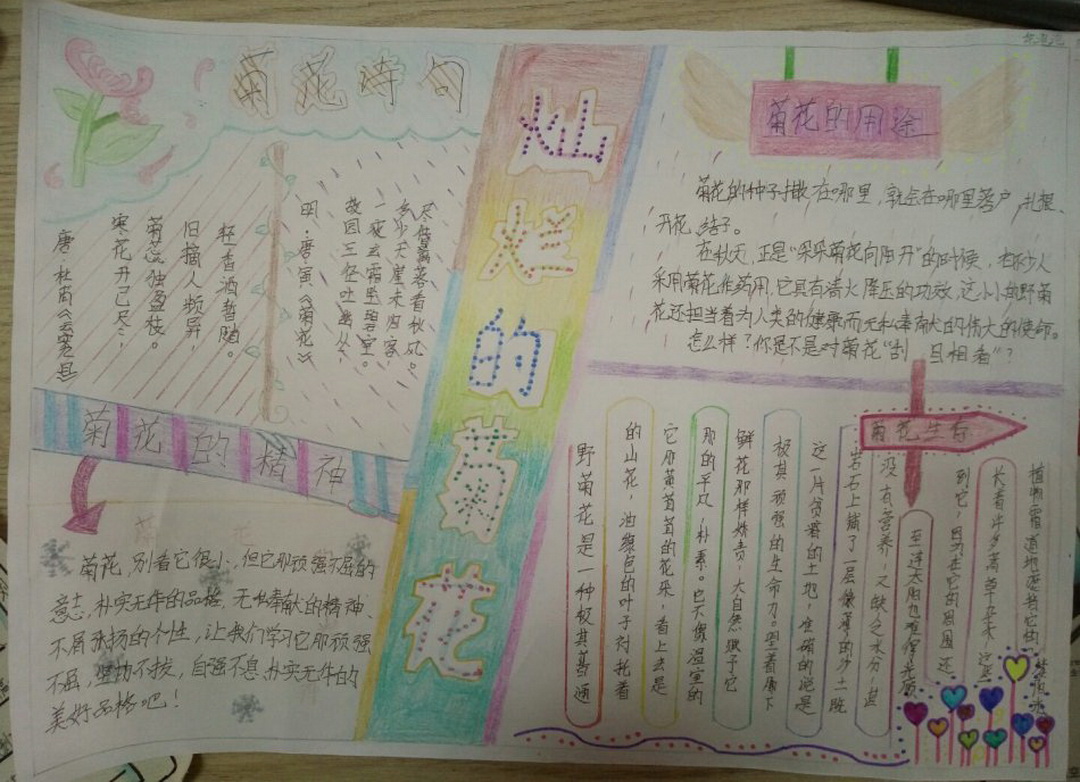 菊花诗句
唐·杜甫
寒花开已尽,
菊蕊独盈枝。
旧摘人频异,
轻香酒暂随。
明·唐寅《菊花》
故园三径吐幽丛,
一夜玄霜坠碧空。
多少天涯未归客,
尽借篱落看秋风。
菊花的精神
菊花,别看它很小,但它那顽强不屈的
意志,朴实无华的品格,无私奉献的精神、
不屑张扬的个性,让我们学习它那顽强
不屈,坚韧不拔,自强不息,朴实无华的
美好品格吧!
灿烂的菊花
菊花的用途
菊花的种子撒在哪里,就会在哪里落户,扎根、
开花、结子。
在秋天,正是“朵朵菊花向阳开”的时候,有不少人
采用菊花作药用,它具有清火降压的功效,这小小的野菊
花还担当着为人类的健康而无私奉献的伟大的使命。
怎么样?你是不是对菊花“刮 目相看”?
菊花生长
野菊花是一种极其普通
的山花,油绿色的叶子衬托着
它那黄茸茸的花朵,看上去是
那的平凡,朴素。它不像温室的
鲜花那样娇贵,大自然赋予它
极其顽强的生命力。望着脚下
这一片贫瘠的土地,准确的说是
岩石上铺了一层薄薄的沙土既
没有营养,又缺乏水分,甚
至连太阳也难得光顾
到它,因为在它的周围还
长着许多蒿草杂木,这些
植物霸道地遮挡它的